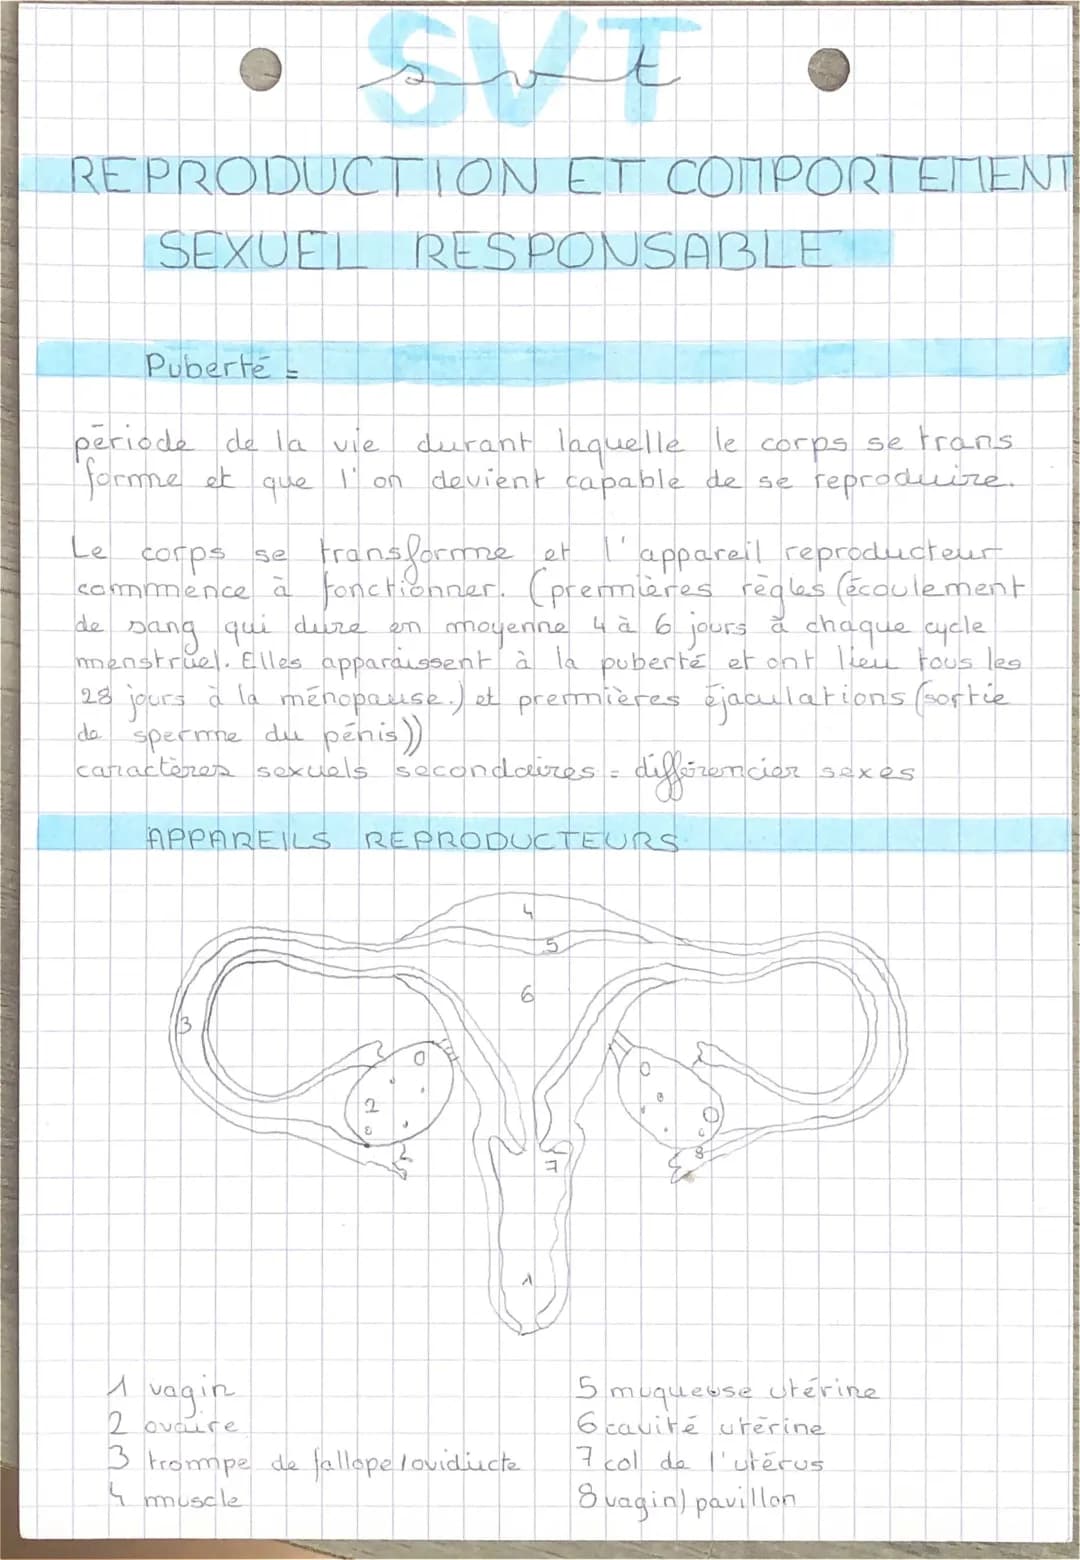 SVT
svt
REPRODUCTION ET COMPORTEMENT
SEXUEL RESPONSABLE
Puberté =
période de la vie durant laquelle le corps se trans
forme et que l'on devient capable de se reproduire.
Le corps se transforme et l'appareil reproducteur
commence à fonctionner. (premières règles (écoulement
de sang qui dure en moyenne 4 à 6 jours à chaque cycle
menstruel. Elles apparaissent à la puberté et ont lieu tous les
28 jours à la ménopause.) et premières éjaculations (sortie
de sperme du pénis))
caractères sexuels secondaires = différencier sexes
APPAREILS REPRODUCTEURS
4
5
6
3
2
8
7
1
1 vagin
2 ovaire
3 trompe de fallope/oviducte
4 muscle
5 muqueuse utérine
6 cavité utérine
7 col de l'utérus
8 vagin) pavillon